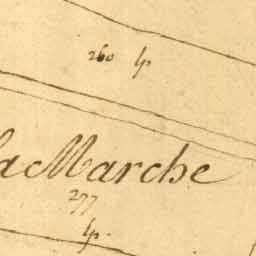 260 lp
la Marche
277
lp.